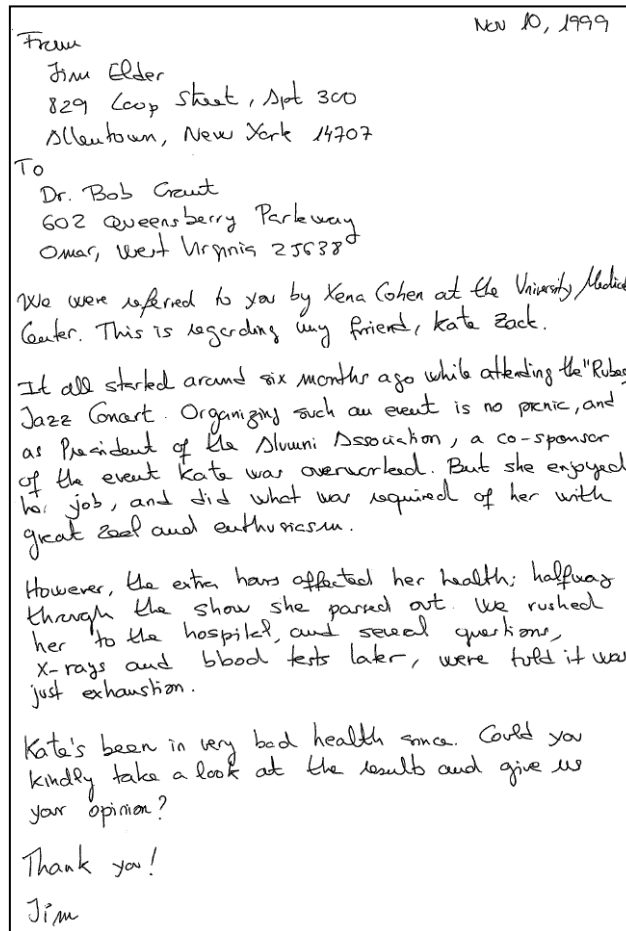 Nov 10, 1999
From
Jim Elder
829 Loop Street, Apt 300
Allentown, New York 14707
To
Dr. Bob Grant
602 Queensberry Parkway
Omar, West Virginia 25638
We were referred to you by Xena Cohen at the University Medical
Center. This is regarding my friend, Kate Zack.
It all started around six months ago while attending the "Rubeq"
Jazz Concert. Organizing such an event is no picnic, and
as President of the Alumni Association, a co-sponsor
of the event Kate was overworked. But she enjoyed
her job, and did what was required of her with
great zeal and enthusiasm.
However, the extra hours affected her health; halfway
through the show she passed out. We rushed
her to the hospital, and several questions,
x-rays and blood tests later, were told it was
just exhaustion.
Kate's been in very bad health since. Could you
kindly take a look at the results and give us
your opinion?
Thank you!
Jim